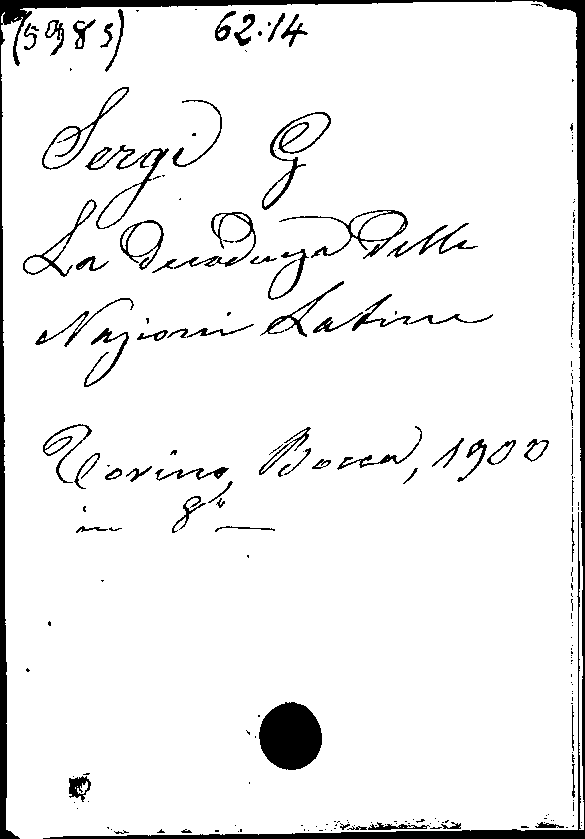 (5985) 62.14
Sergi G
La Decadenza Delle
Nazioni Latine
Torino, Bocca, 1900
in 8°